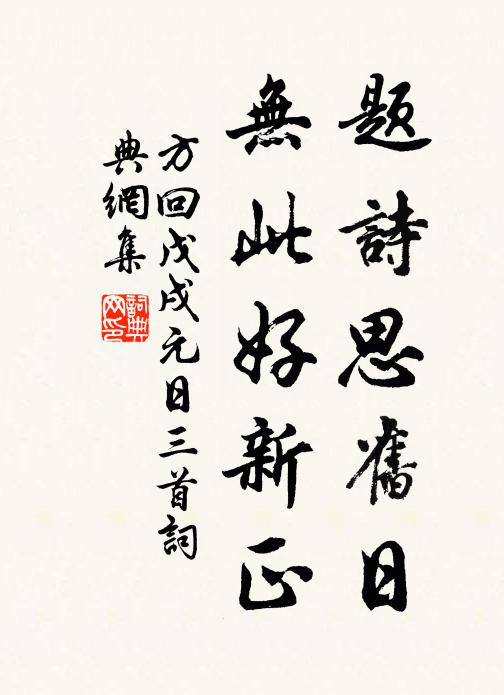 題詩思舊日
無此好新正
方回戊戌元日三首詞
典網集
詞典
网印